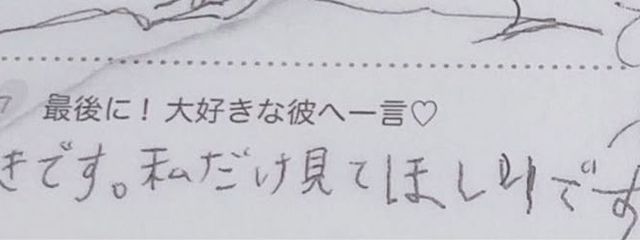 7 最後に！大好きな彼へ一言♡
きです。私だけ見てほしいです